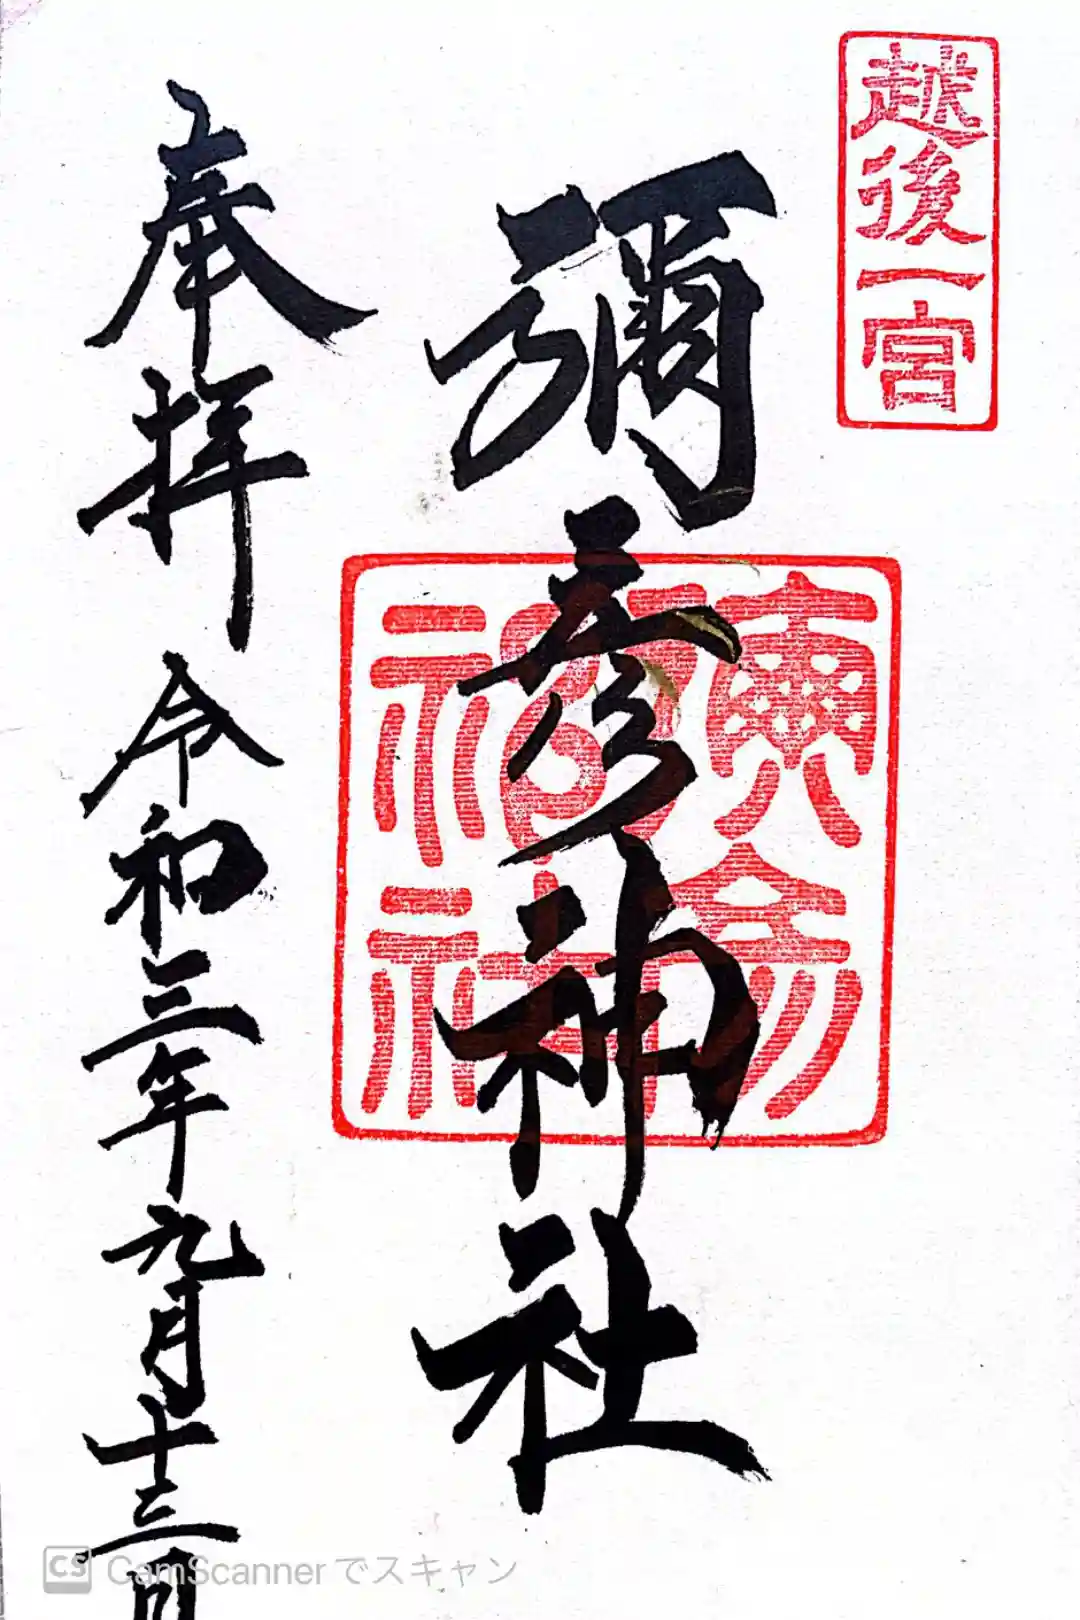 越後一宮
彌彦神社
奉拝 令和三年九月十三日
CS CamScannerでスキャン